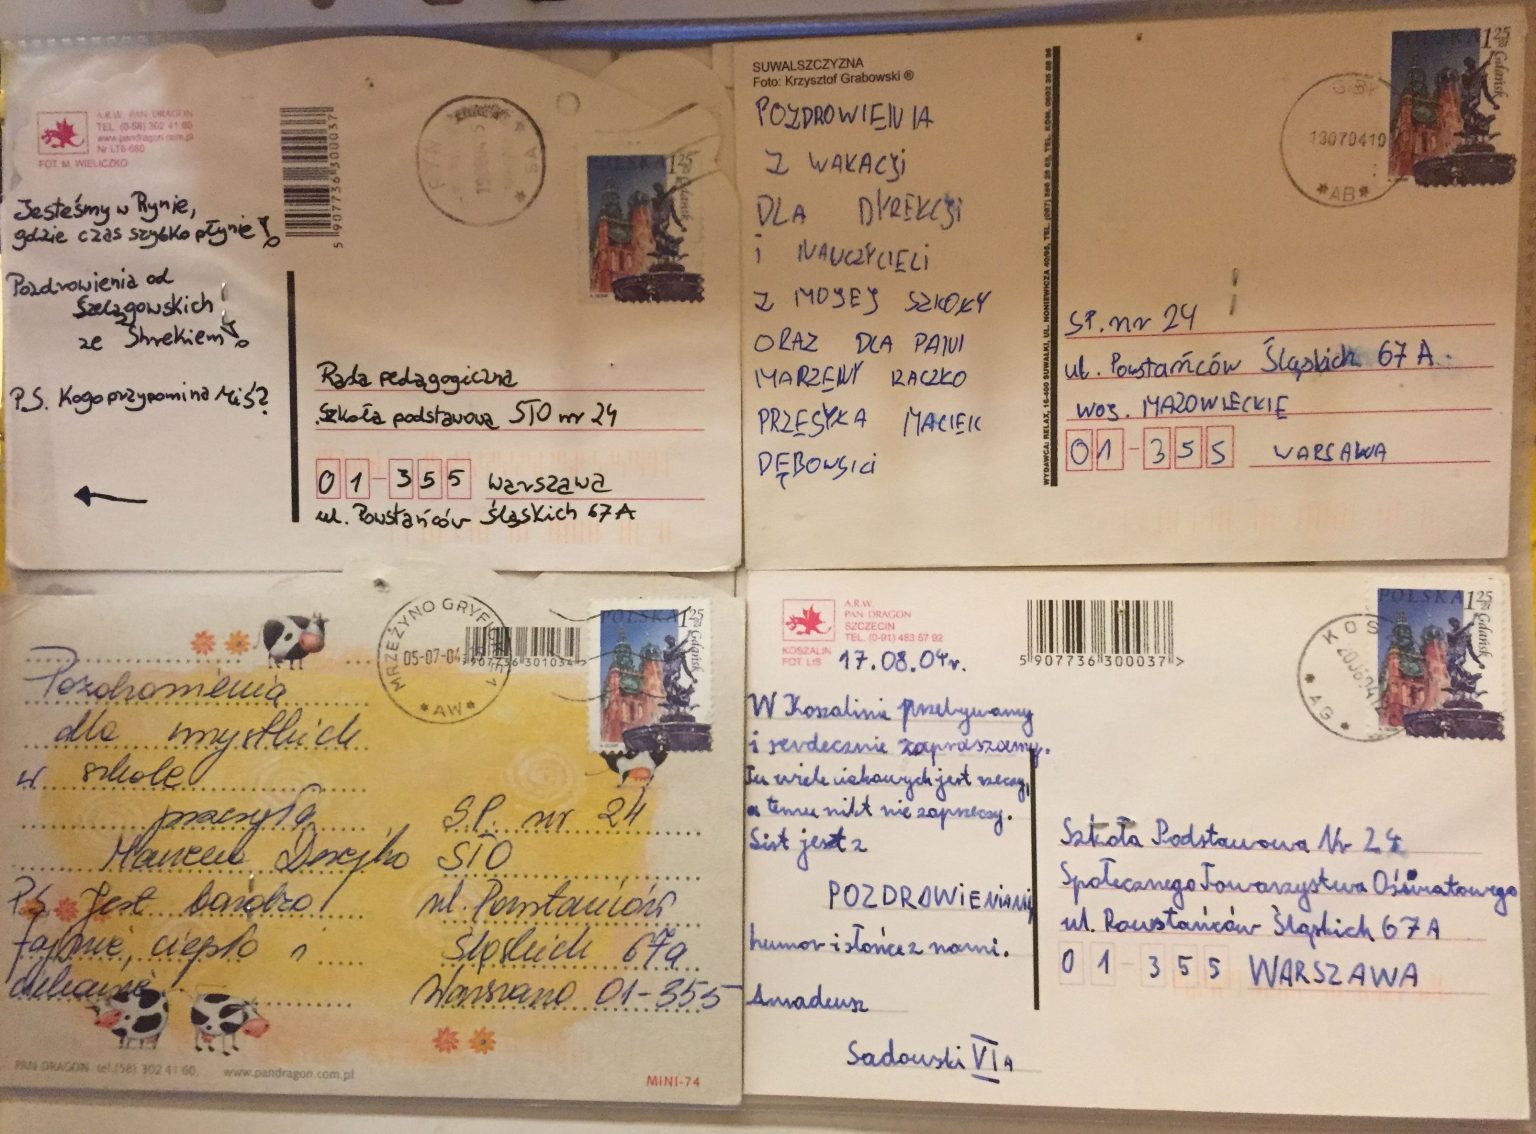 A.R.W. PAN DRAGON
TEL. (0-58) 302 41 60
www.pandragon.com.pl
Nr LT6-680
FOT. M. WIELICZKO
5 907736 300037
POLSKA 1 25 ZŁ
Gdańsk
Jesteśmy w Rynie,
gdzie czas szybko płynie!
Pozdrowienia od
Szelągowskich
ze Shrekiem!
P.S. Kogo przypomina Miś?
Rada pedagogiczna
Szkoła podstawowa STO nr 24
01-355 Warszawa
ul. Powstańców Śląskich 67A
SUWALSZCZYZNA
Foto: Krzysztof Grabowski ®
POZDROWIENIA
Z WAKACJI
DLA DYREKCJI
i NAUCZYCIELI
Z MOJEJ SZKOŁY
ORAZ DLA PANI
MARZENY RACZKO
PRZESYŁA MACIEK
DĘBOWSKI
130704 19
*AB*
1 25 ZŁ
Gdańsk
SP. nr 24
ul. Powstańców Śląskich 67A.
woj. MAZOWIECKIE
01-355 WARSAWA
MRZEŻYNO GRYFI
05-07-04
*AW*
907736 301034
POLSKA 1 25 ZŁ
Gdańsk
Pozdrowienia
dla wszystkich
w szkole
przesyła
P.S. Jest bardzo
fajnie, ciepło i
ciekawie
S.P. nr 24
STO
ul. Powstańców
Śląskich 67a
Warszawa 01-355
PAN DRAGON tel. (58) 302 41 60, www.pandragon.com.pl
MINI-74
A.R.W.
PAN DRAGON
SZCZECIN
TEL. (0-91) 483 57 92
KOSZALIN
FOT. LIS
5 907736 300037 >
KOS
*AG*
POLSKA 1 25 ZŁ
Gdańsk
17.08.04r.
W Koszalinie przebywamy
i serdecznie zapraszamy.
Tu wiele ciekawych jest rzeczy,
a temu nikt nie zaprzeczy.
List jest z
POZDROWIENIAMI,
humor i słońce z nami.
Amadeusz
Sadowski VI A
Szkoła Podstawowa Nr 24
Społecznego Towarzystwa Oświatowego
ul. Powstańców Śląskich 67A
01-355 WARSZAWA